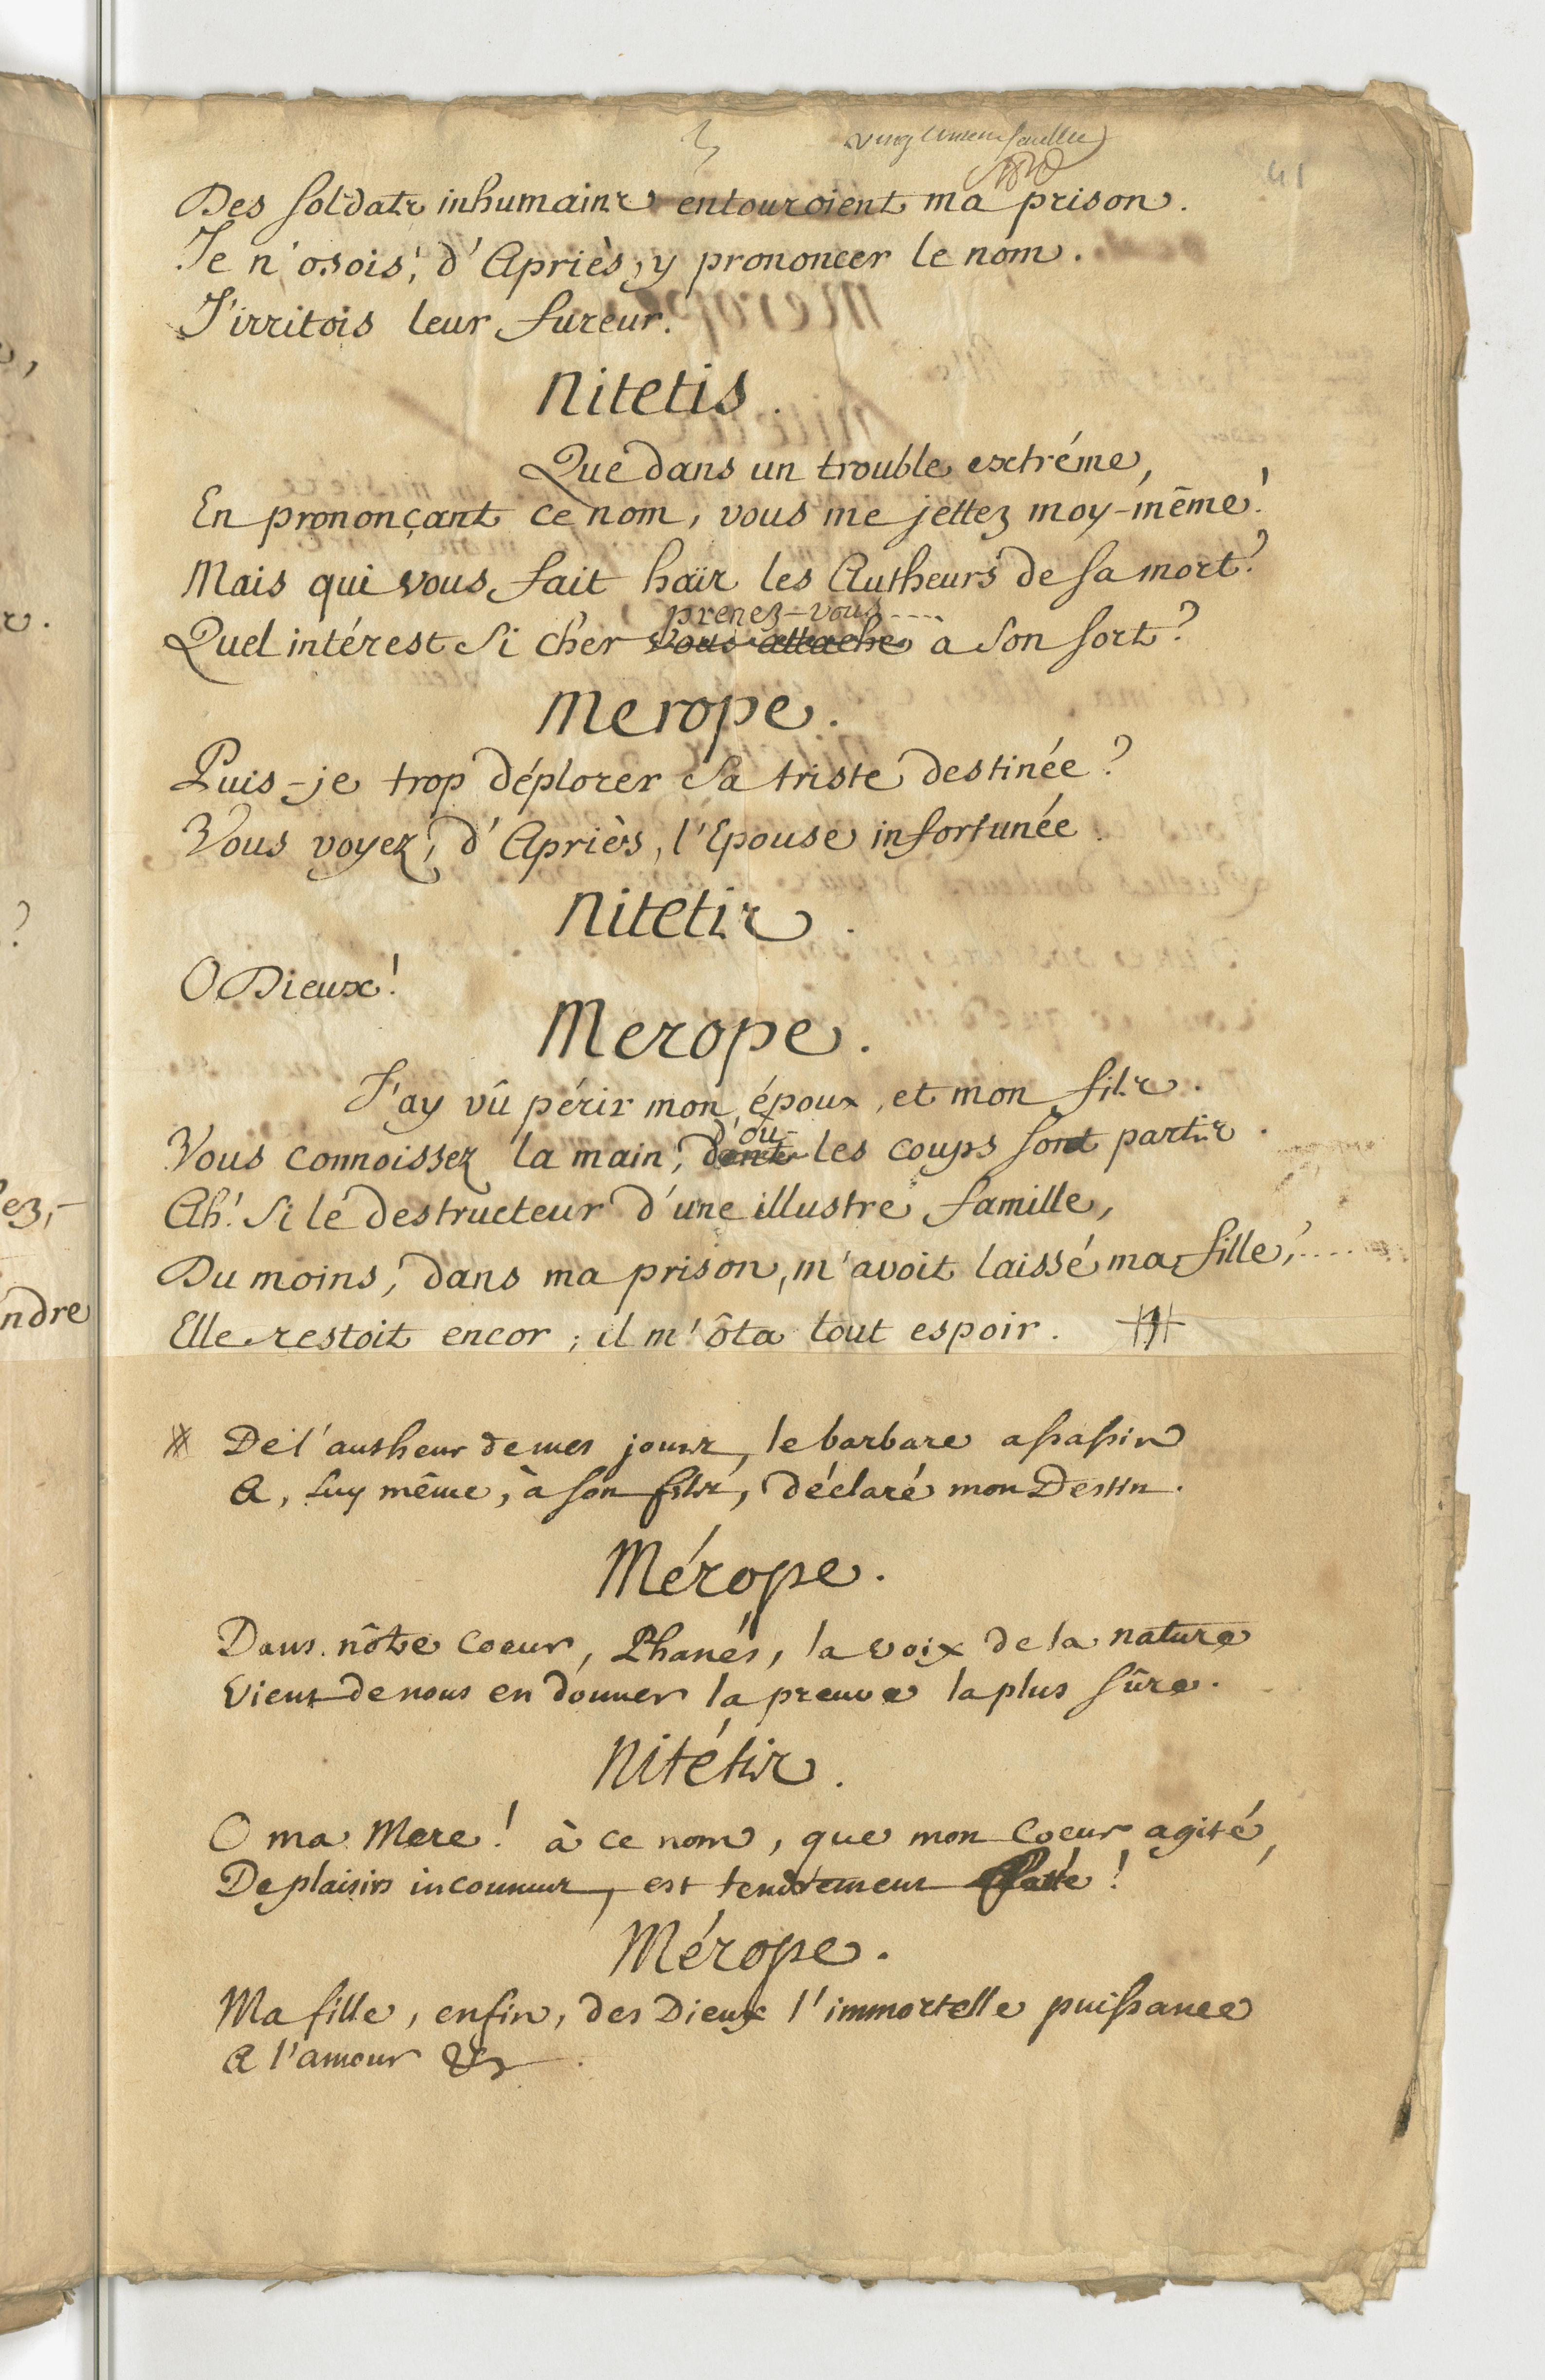 41
Des soldats inhumains entouroient ma prison.
Je n'osois, d'Apriès, y prononcer le nom.
J'irritois leur fureur.
Nitetis.
Que dans un trouble extréme,
En prononçant ce nom, vous me jettez moy-même!
Mais qui vous fait haïr les Autheurs de sa mort?
prenez-vous
Quel intérest si cher vous attache à son sort?
Merope.
Puis-je trop déplorer sa triste destinée?
Vous voyez, d'Apriès, l'Epouse infortunée.
Nitetis.
O Dieux!
Merope.
J'ay vû périr mon époux, et mon fils.
d'ou
Vous connoissez la main, dont les coups sont partis.
Ah! si le destructeur d'une illustre famille,
Du moins, dans ma prison, m'avoit laissé ma fille,....
Elle restoit encor; il m'ôta tout espoir.
De l'autheur de mes jours, le barbare assassin
A, luy même, à son fils, déclaré mon Destin.
Mérope.
Dans nôtre coeur, Phanés, la voix de la nature
Vient de nous en donner la preuve la plus sûre.
Nitétis.
O ma Mere! à ce nom, que mon coeur agité,
De plaisirs inconnus, est tendrement flatté!
Mérope.
Ma fille, enfin, des Dieux l'immortelle puissance
A l'amour &c